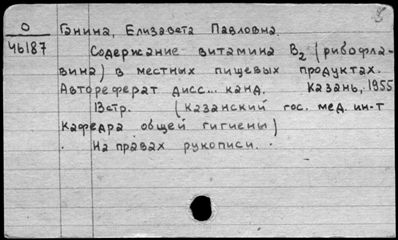 О Ганина, Елизавета Павловна.
46187 Содержание витамина В₂ (рибофла-
вина) в местных пищевых продуктах.
Автореферат дисс... канд. Казань, 1955
13стр. (Казанский гос. мед. ин-т
Кафедра общей гигиены)
На правах рукописи.